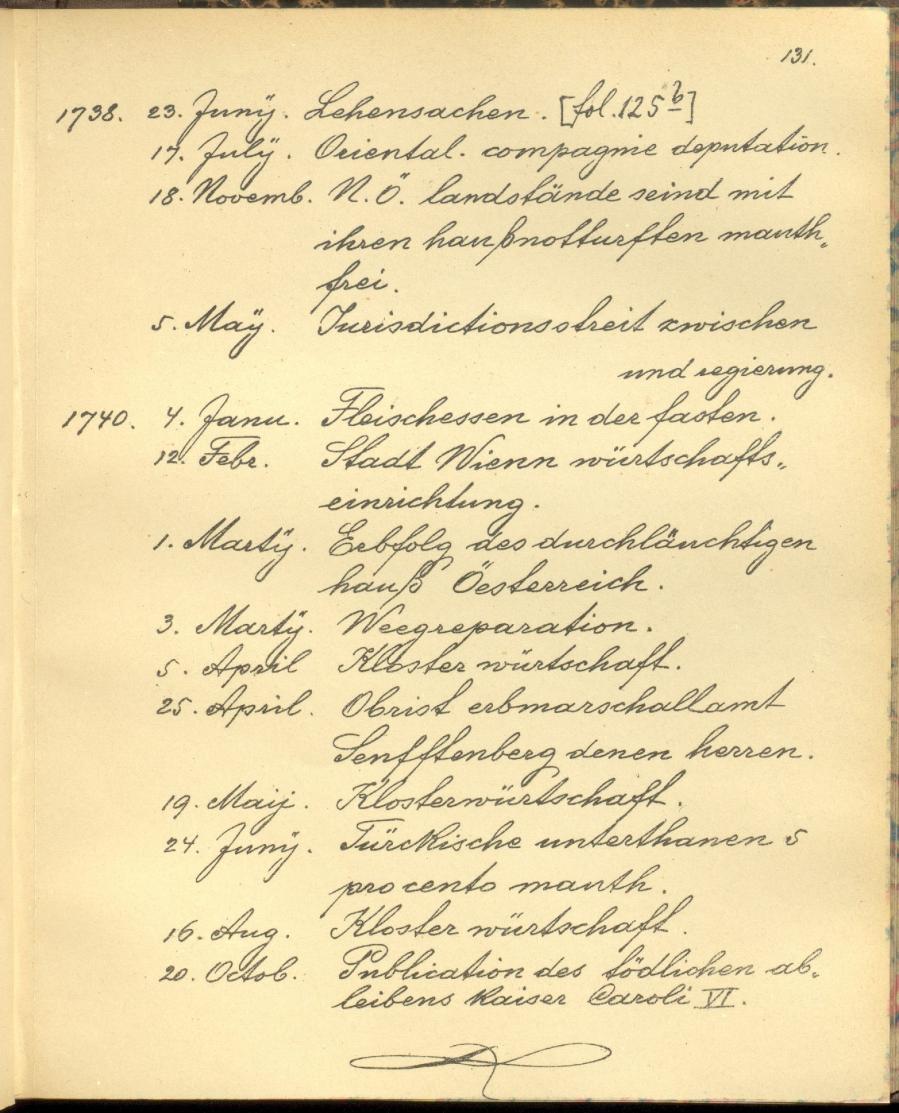 131.
1738. 23. Junÿ. Lehensachen. [fol. 125 b]
17. Julÿ. Oriental. compagnie deputation.
18. Novemb. N. Ö. landstände seind mit
ihren haußnotturften mauth„
frei.
5. Maÿ. Jurisdictionsstreit zwischen
und regierung.
1740. 4. Janu. Fleischessen in der fasten.
12. Febr. Stadt Wienn würtschafts„
einrichtung.
1. Martÿ. Erbfolg des durchläuchtigen
hauß Öesterreich.
3. Martÿ. Weegreparation.
5. April Kloster würtschaft.
25. April. Obrist erbmarschallamt
Senfftenberg denen herren.
19. Maij. Klosterwürtschaft.
24. Junÿ. Türckische unterthanen 5
pro cento mauth.
16. Aug. Kloster würtschaft.
20. Octob. Publication des tödlichen ab„
leibens Kaiser Caroli VI.